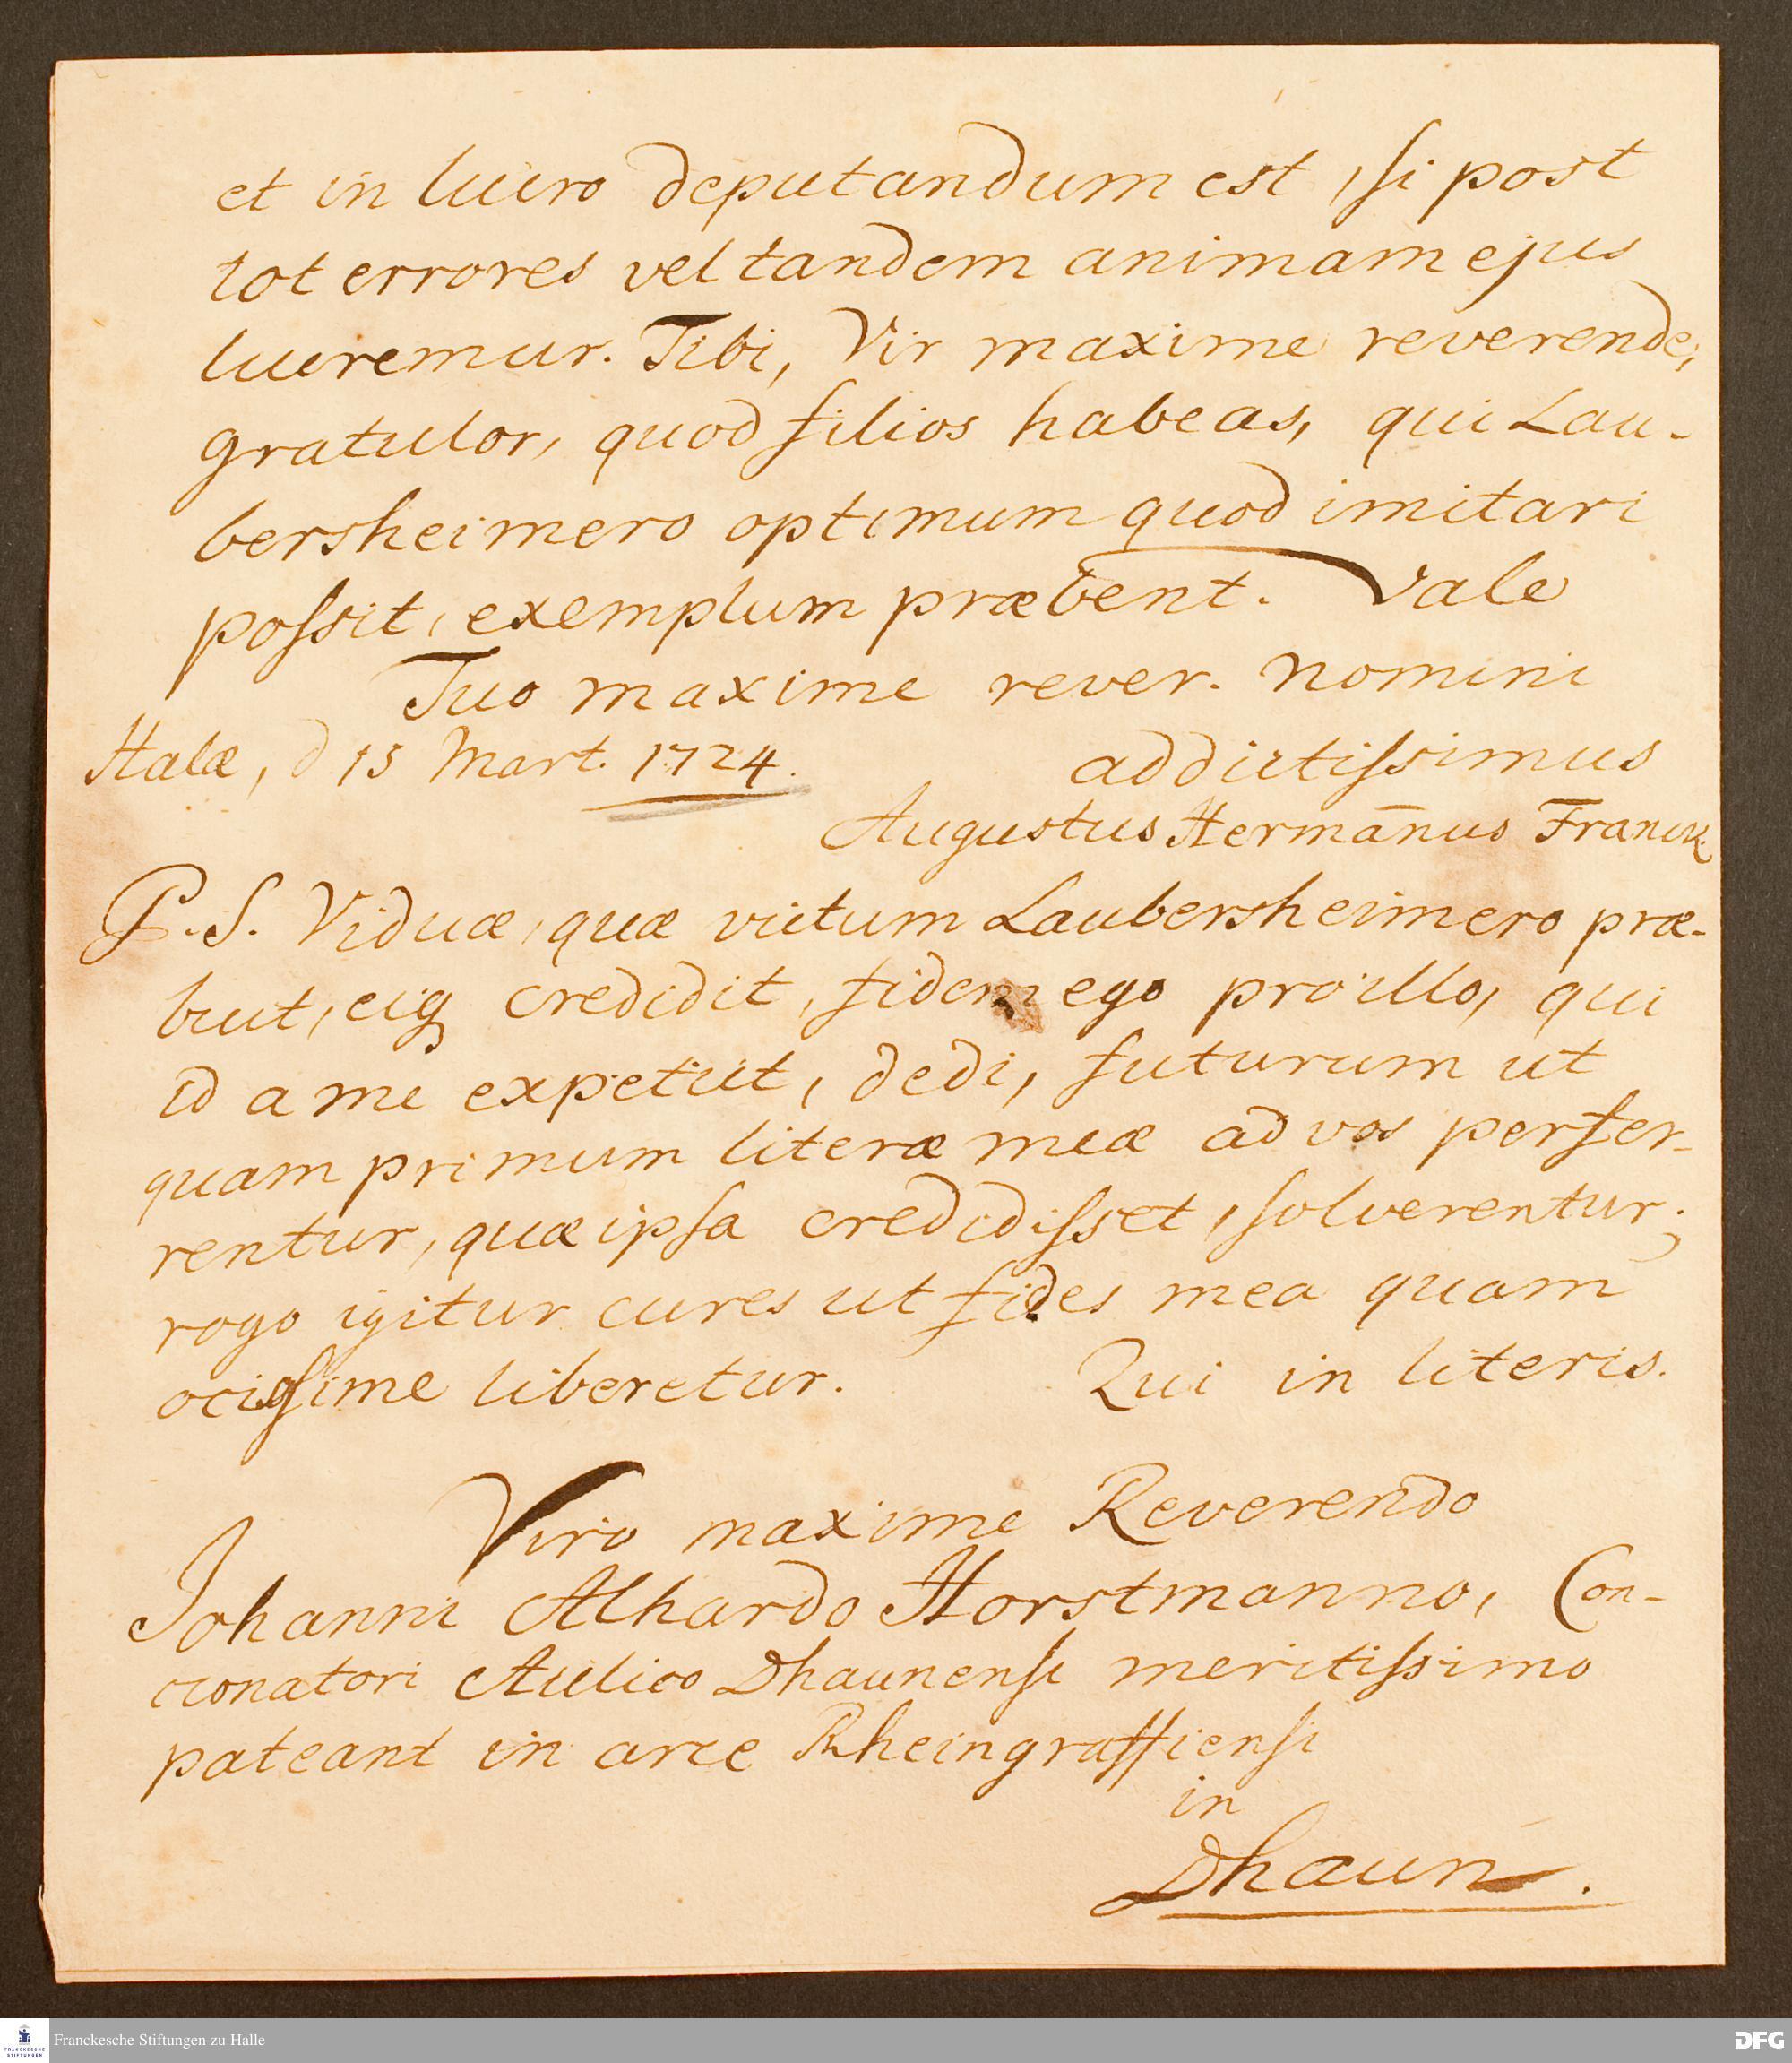 et in lucro deputandum est, si post
tot errores vel tandem animam ejus
lucremur. Tibi, Vir maxime reverende,
gratulor, quod filios habeas, qui Lau-
bersheimero optimum quod imitari
possit, exemplum præbent. Vale
Tuo maxime rever. nomini
Halæ, d 15 Mart. 1724. addictissimus
Augustus Herman̄us Franck.
P.S. Viduæ, quæ victum Laubersheimero præ-
buit, eiq; credidit, fidem ego pro illo, qui
id a me expetiit, dedi, futurum ut
quam primum literæ meæ ad vos perfer-
rentur, quæ ipsa credidisset, solverentur;
rogo igitur cures ut fides mea quam
ocissime liberetur. Qui in literis.
Viro maxime Reverendo
Johanni Alhardo Horstmanno, Con-
cionatori Aulico Dhaunensi meritissimo
pateant in arce Rheingraffiensi
in
Dhaun.
Franckesche Stiftungen zu Halle
FRANCKESCHE
STIFTUNGEN
DFG